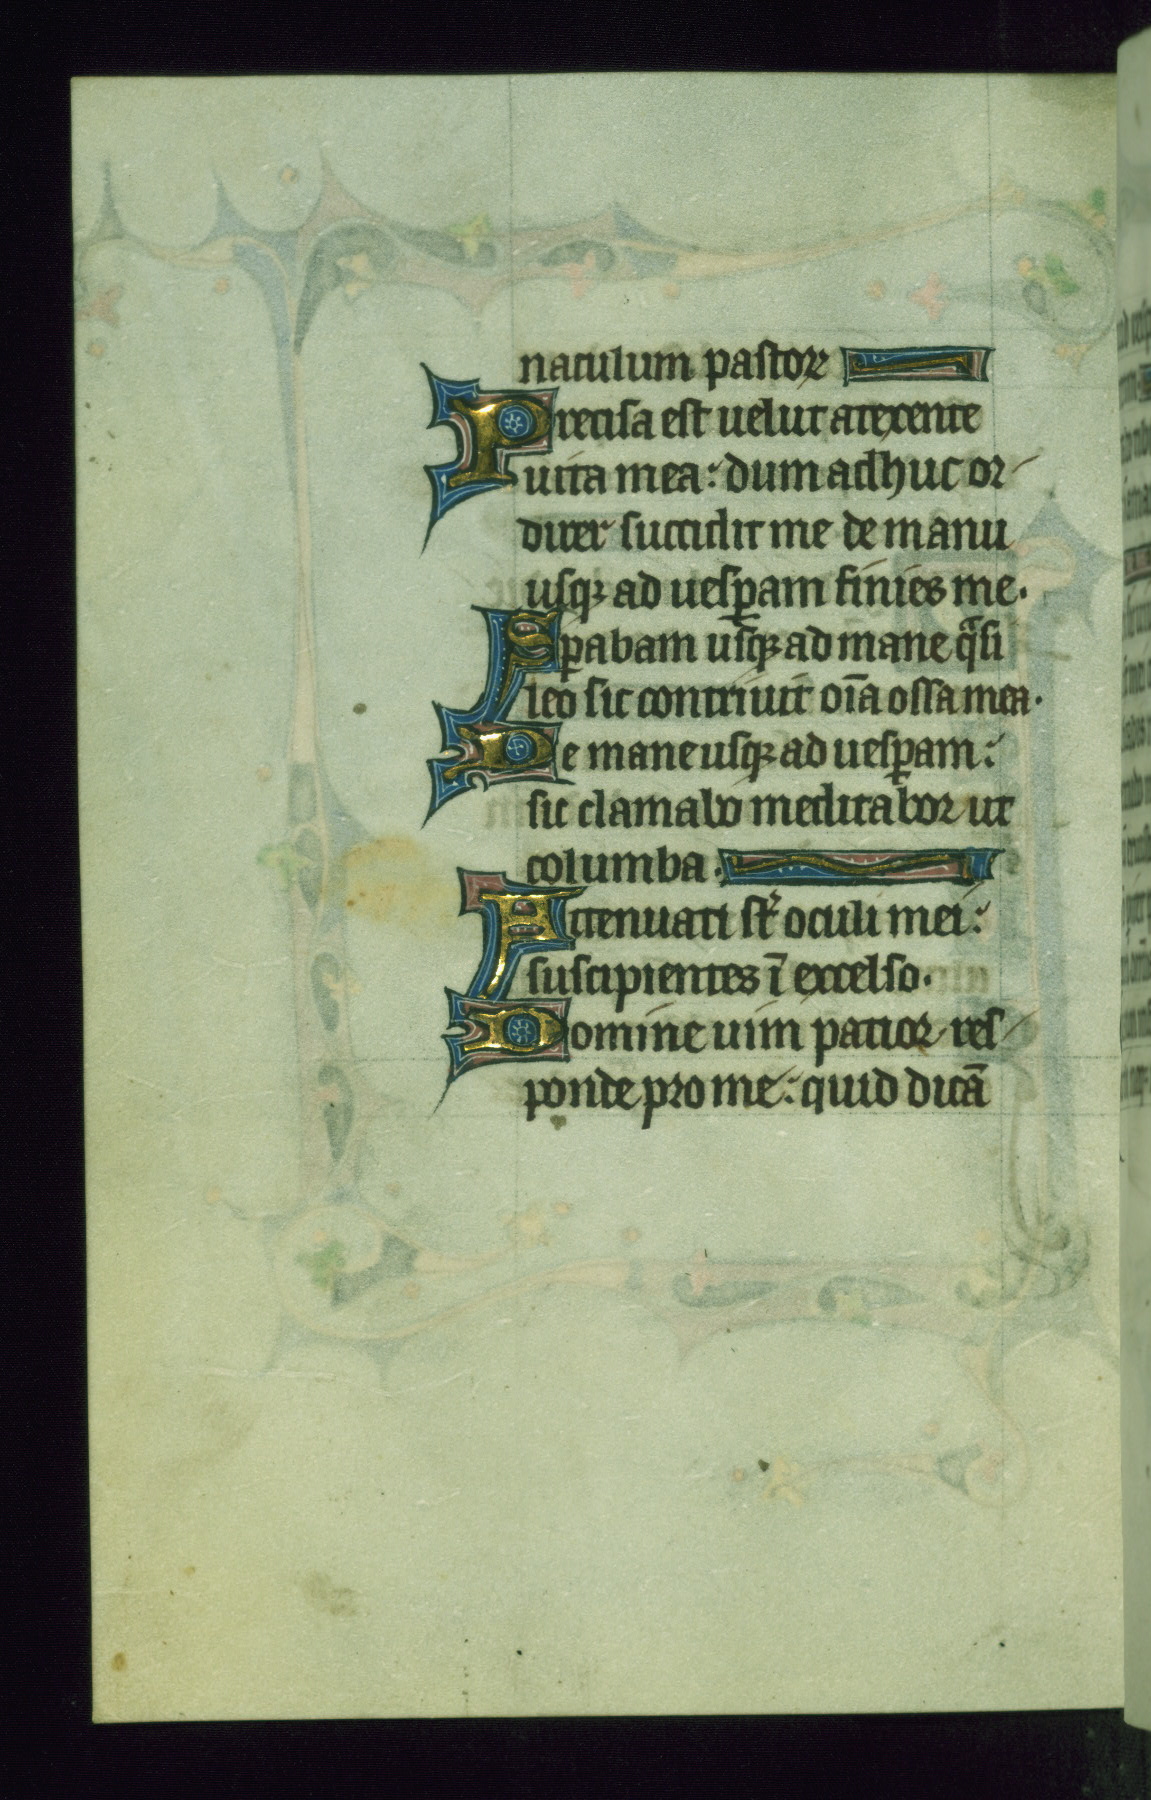 naculum pastoꝝ
Precisa est uelut a texente
uita mea: dum adhuc or
direr succidit me de manu
usqꝫ ad uesꝑam finies me.
Sꝑabam usqꝫ ad mane qͣsi
leo sic contriuit oīa ossa mea.
De mane usqꝫ ad uesꝑam:
sic clamabo meditabor ut
columba.
Attenuati st᷑ oculi mei:
suscipientes ī excelso.
Domine uim patior res
ponde pro me: quid dicā